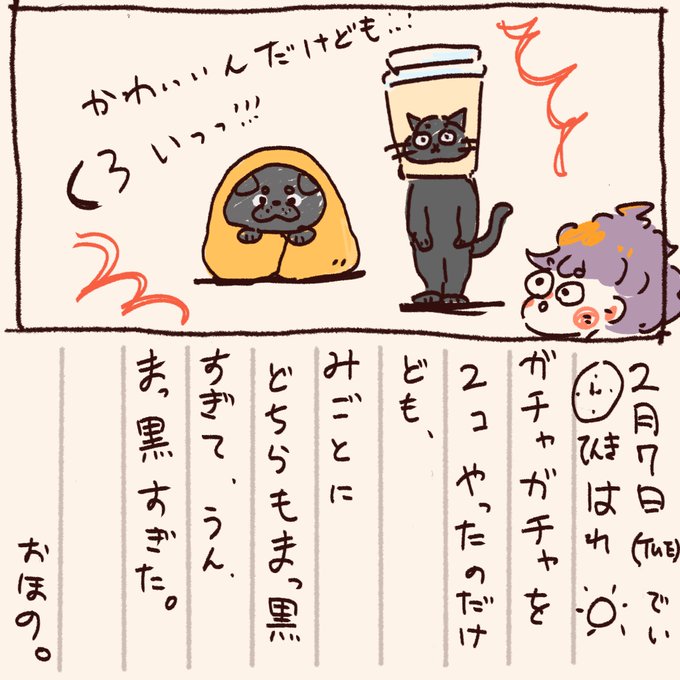 かわいいんだけども…!!
くろいっっ!!!
2月7日(TUE)でい
てんき はれ
ガチャガチャを
2コ やったのだけ
ども、
みごとに
どちらもまっ黒
すぎて、うん、
まっ黒すぎた。
おほの。